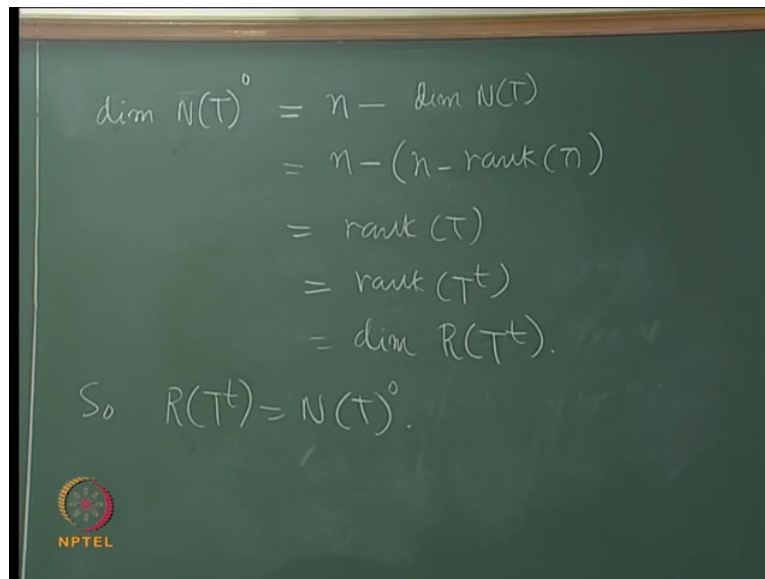 dim N(T)⁰ = n - dim N(T)
= n - (n - rank(T))
= rank (T)
= rank (Tᵗ)
= dim R(Tᵗ).
So R(Tᵗ) = N(T)⁰.
NPTEL